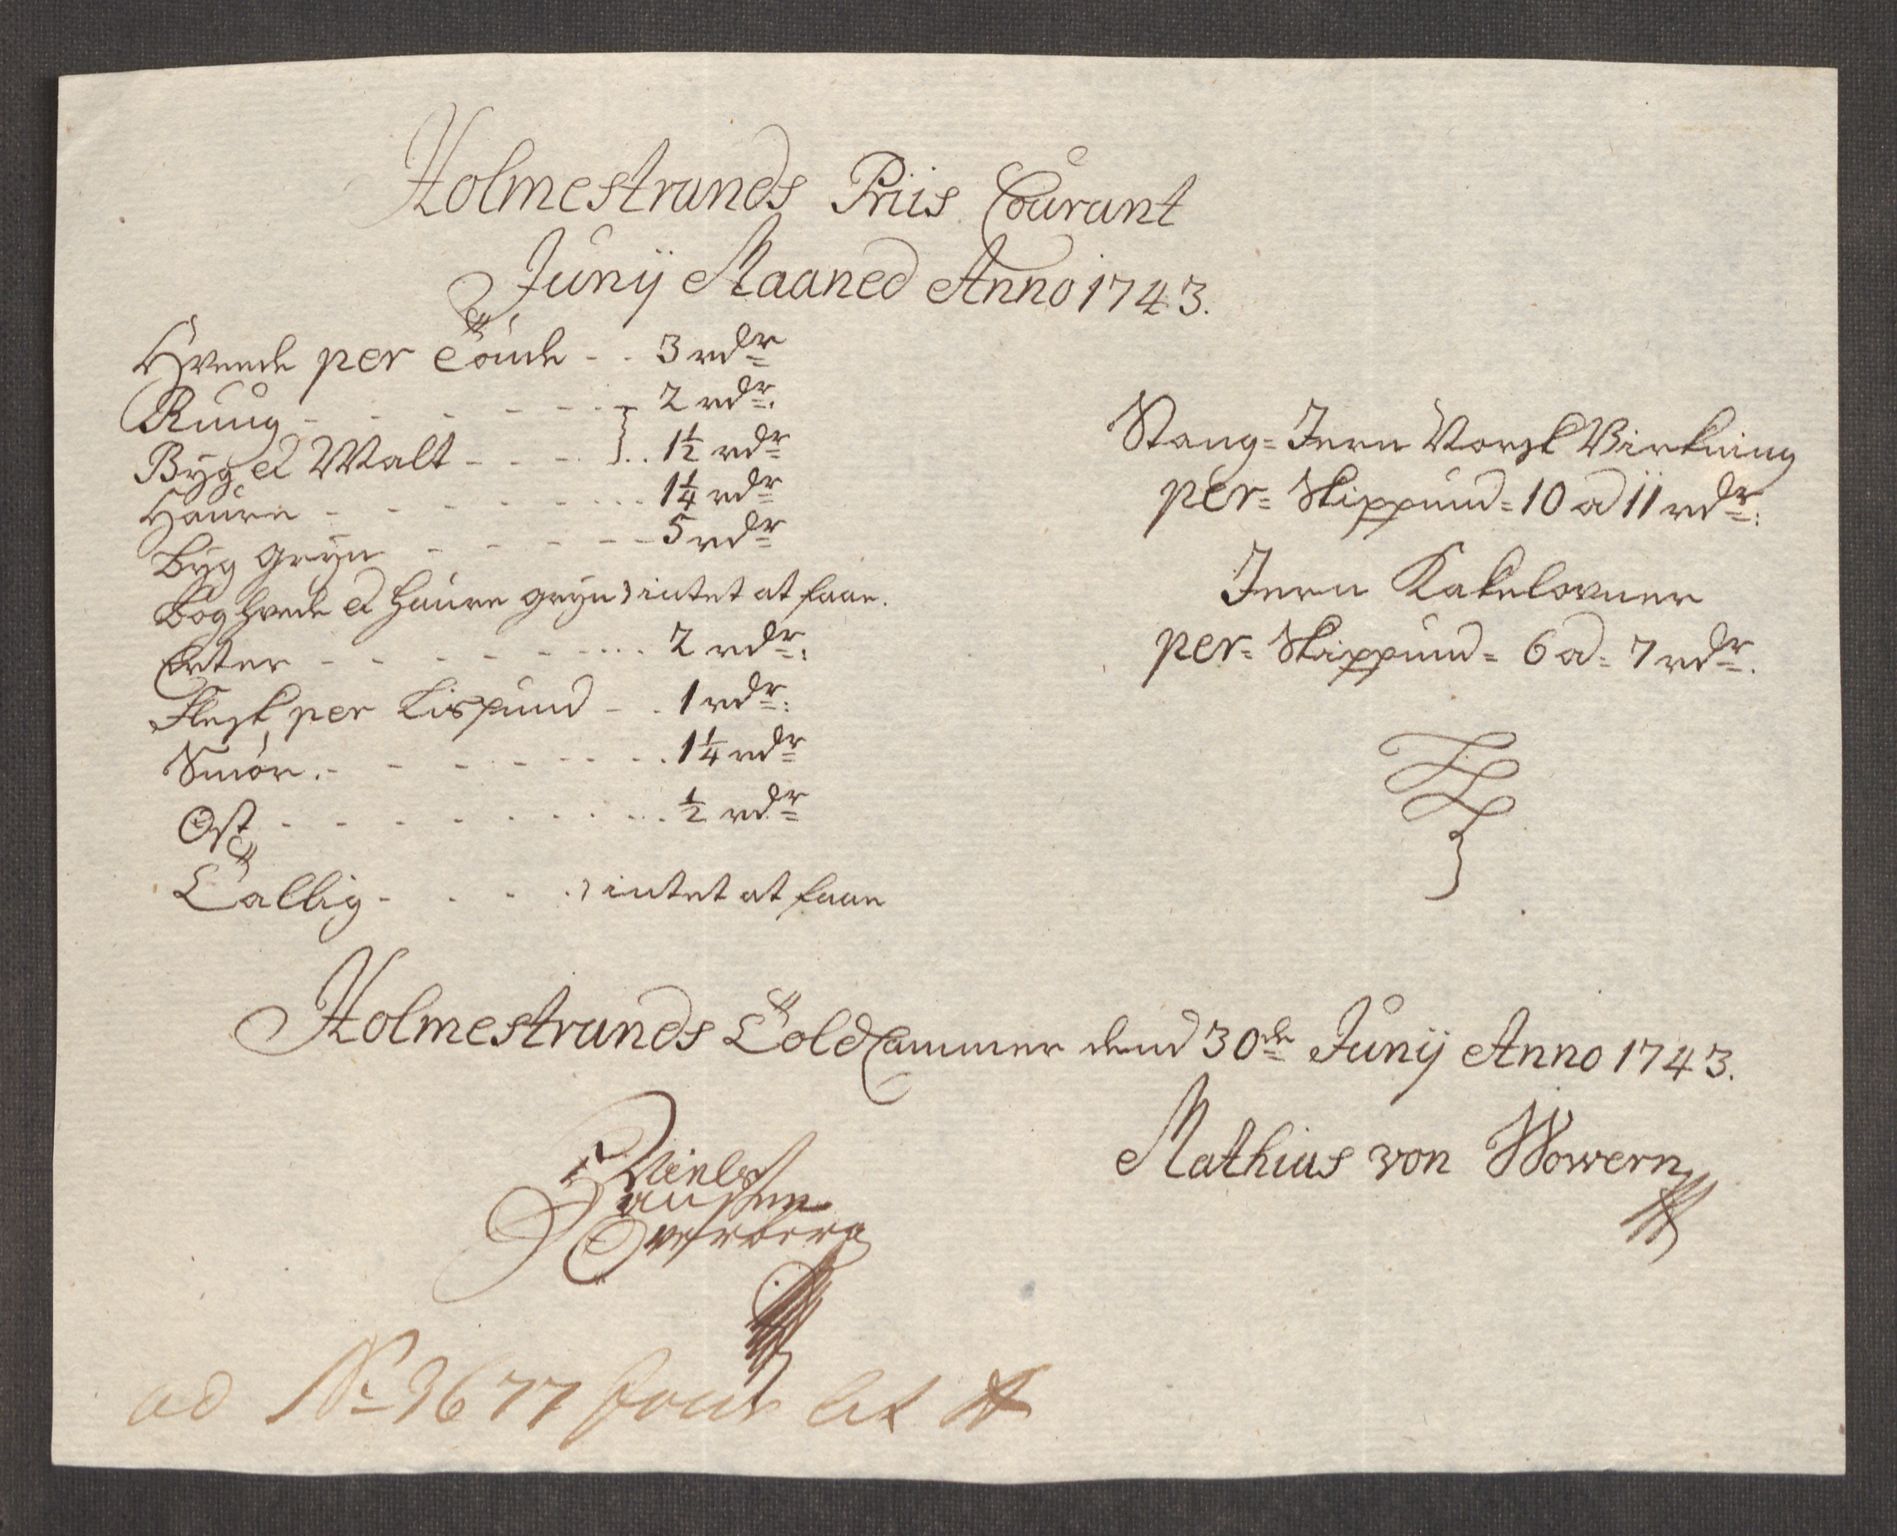 Holmestrands Priis Courant
Junij Maaned Anno 1743.
Hveede per Tönde - - 3 rdr
Ruug - - - - - - - 2 rdr.
Byg et Malt - - - - } 1½ rdr
Haure - - - - - - 1¼ rdr
Byg gryn - - - - - 5 rdr
Boghvede et haure gryn } intet at faae.
Erter - - - - - - - 2 rdr:
Flesk, per Lispund - - 1 rdr:
Smör - - - - - - - 1¼ rdr
Ost - - - - - - - ½ rdr
Tallig - - - - } intet at faae
Stang = Jern Norsk Virkning
per = Skippund = 10 ad 11 rdr:
Jern Kakelovner
per = Skippund = 6 ad = 7 rdr.
Holmestrands Told Cammer dend 30de Junij Anno 1743.
Niels
Hansen
Overberg
Mathias von Wowern
ad No 3677 Lit A